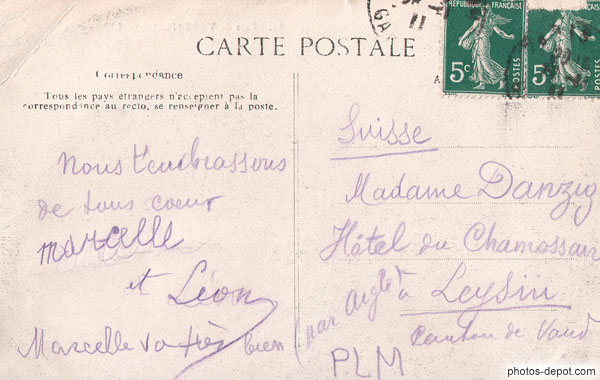 11
GA
RÉPUBLIQUE FRANÇAISE
5c
POSTES
5c
POSTES
CARTE POSTALE
Correspondance
Tous les pays étrangers n'acceptent pas la
correspondance au recto, se renseigner à la poste.
Nous t'embrassons
de tous coeur
marcelle
et Léon
Marcelle va très bien
Suisse
Madame Danzig
Hôtel du Chamossaire
(par Aigle) à Leysin
Canton de Vaud
PLM
photos-depot.com